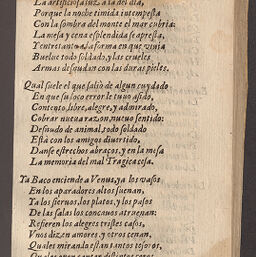 La artificiosa luz a la del dia,
Porque la noche timida intempesta
Con la sombra del monte el mar cubria:
La mesa y cena esplendida se apresta,
Y entretanto la forma en que
Buelue todo soldado, y las crueles
Armas desnudan con las duras pieles.
Qual suele el que salio de algun cuydado
En que su loco error le tuuo asido,
Contento, libre, alegre, y admirado,
Cobrar nueua razon, nueuo sentido:
Desnudo de animal, todo soldado
Està con los amigos diuertido,
Danse estrechos abraços, y en la mesa
La memoria del mal Tragica cesa.
Ya Baco enciende a Venus, ya los vasos
En los aparadores altos suenan,
Ya los sieruos, los platos, y los pasos
De las salas los concauos atruenan:
Refieren los alegres tristes casos,
Vnos dizen amores, y otros cenan,
Quales mirando estan tantos tesoros,